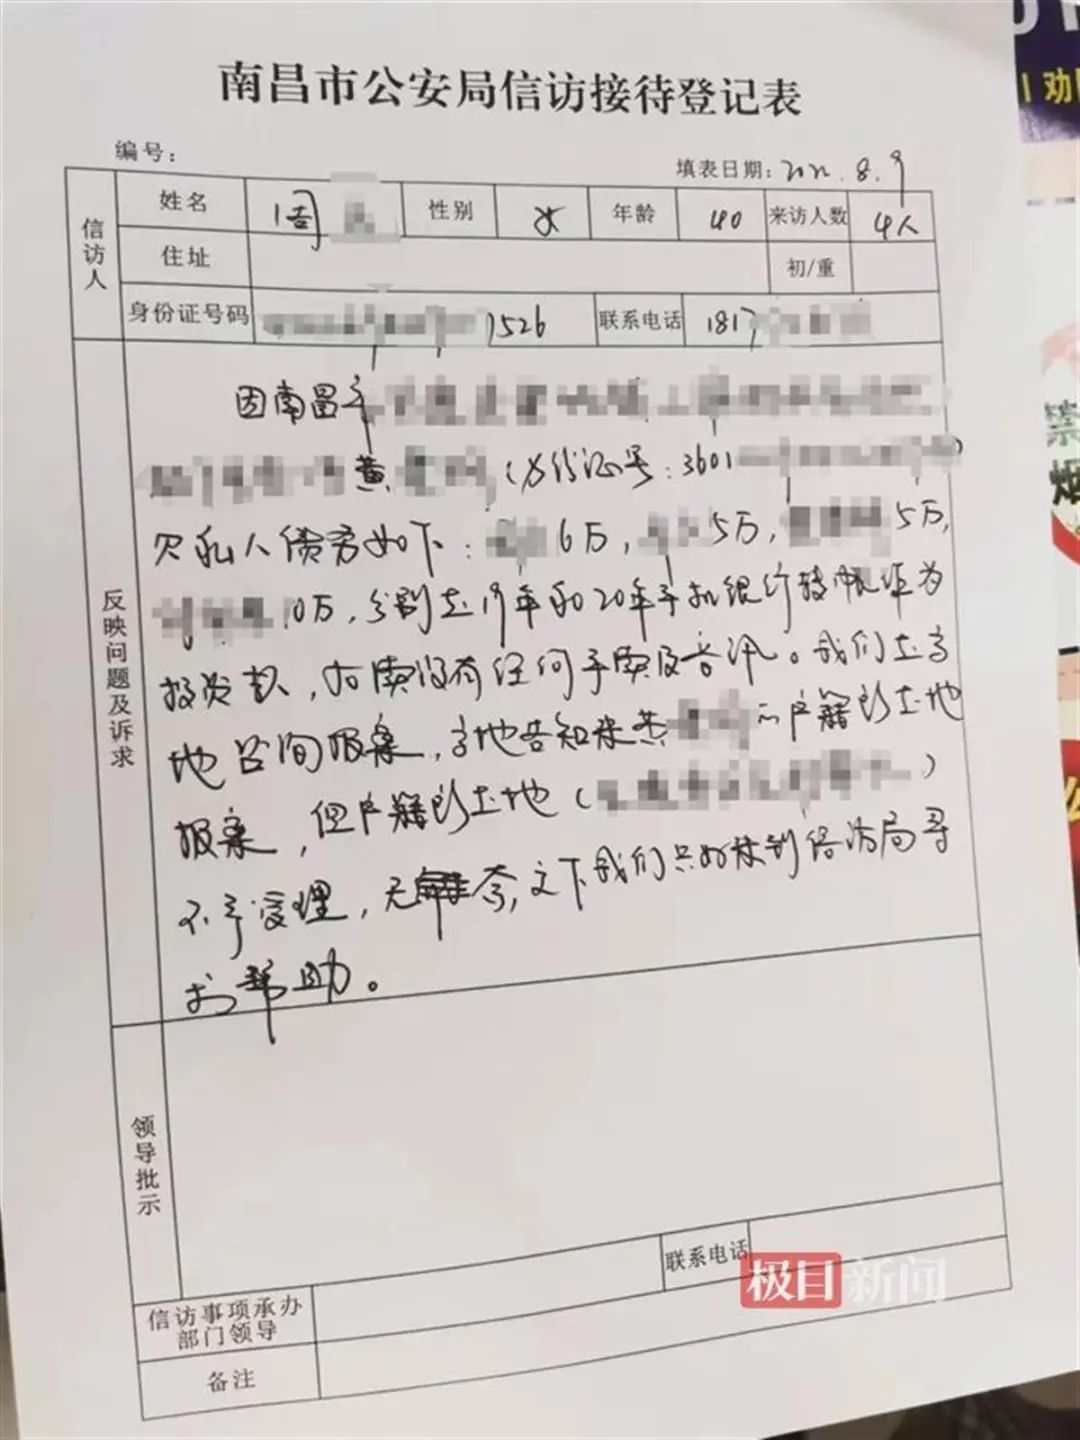 南昌市公安局信访接待登记表
编号：
填表日期：2021.8.9
信访人
姓名 周 性别 女 年龄 40 来访人数 4人
住址 初/重
身份证号码 1526 联系电话 1817
反映问题及诉求
因南昌市
黄 （身份证号：3601 ）
欠私人债务如下： 6万， 5万， 5万，
10万，分别在19年和20年手机银行转帐作为
投资款，后续没有任何手续及音讯。我们在当
地公安报案，当地告知来黄 的户籍所在地
报案，但户籍所在地（ ）
不予受理，无奈之下我们只好来到信访局寻
求帮助。
领导批示
联系电话
信访事项承办
部门领导
备注
极目新闻
劝
禁
烟